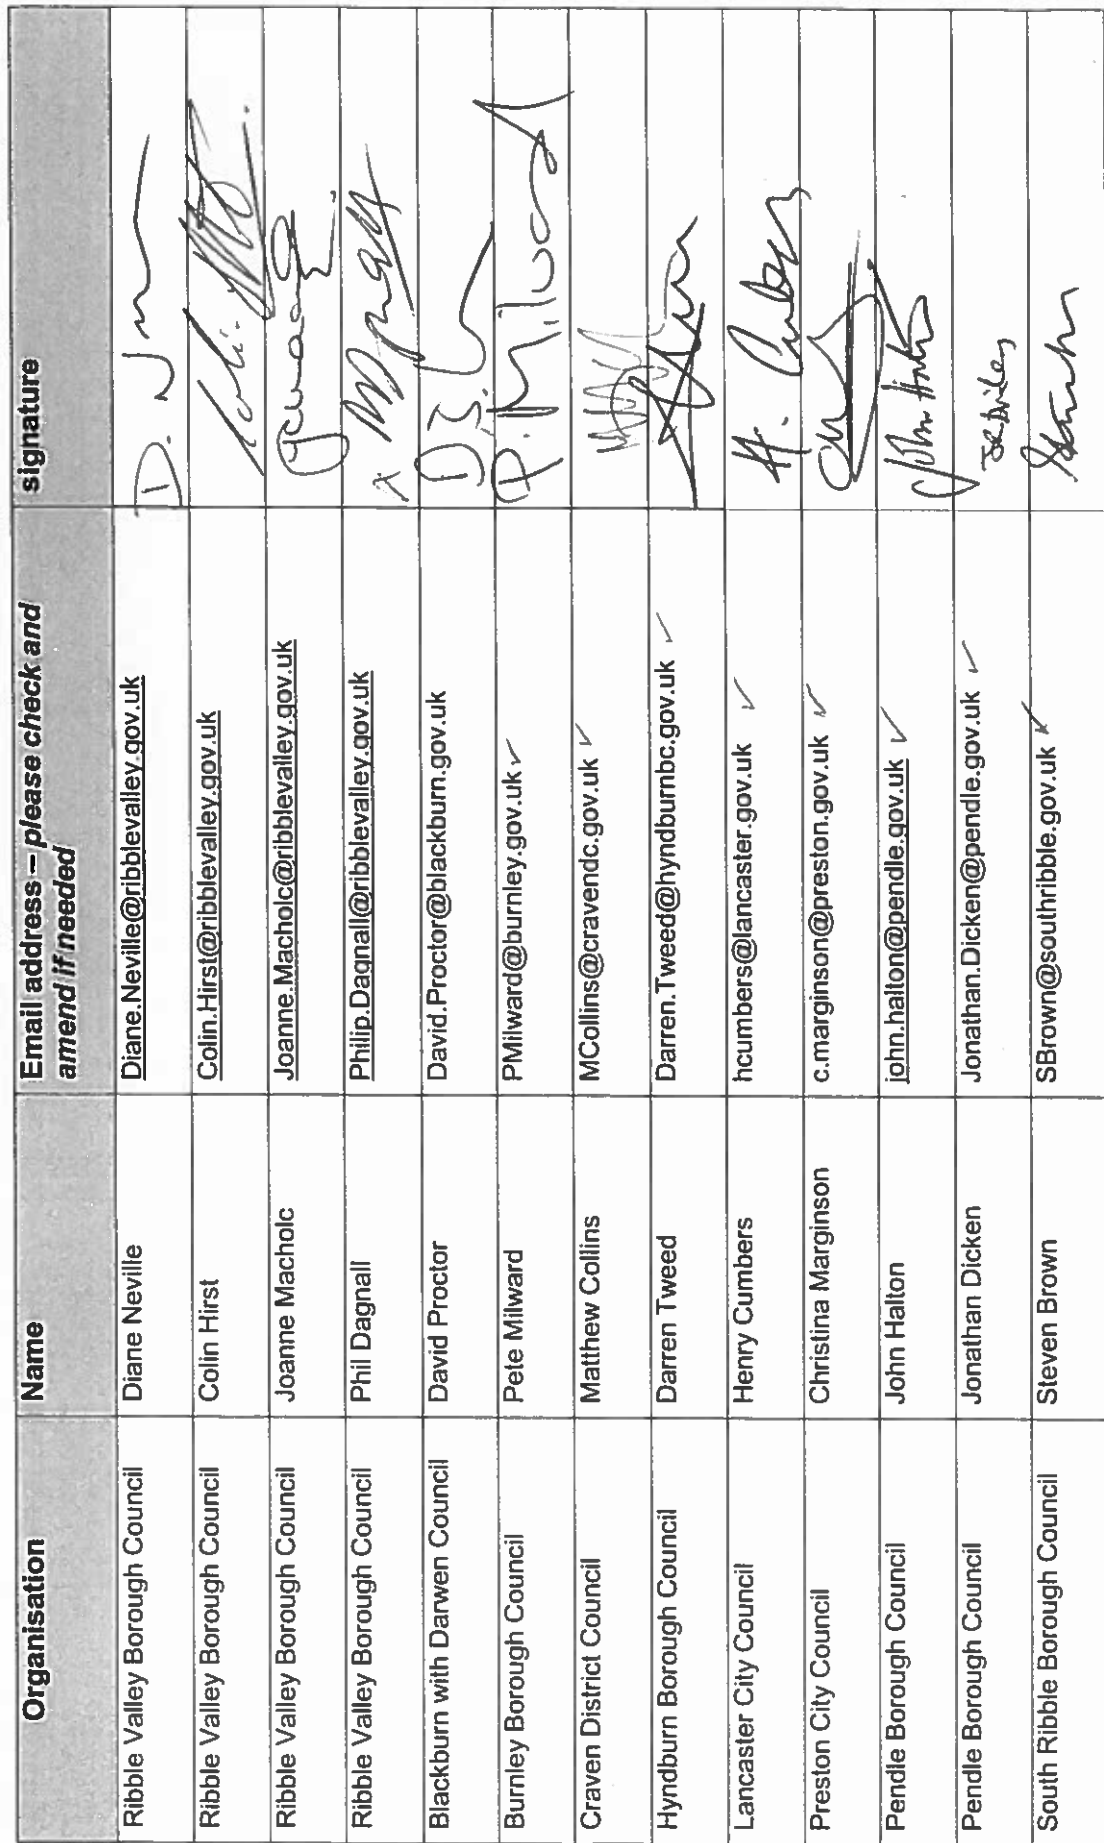 Organisation Name Email address – please check and signature
amend if needed
Ribble Valley Borough Council Diane Neville Diane.Neville@ribblevalley.gov.uk D. N
Ribble Valley Borough Council Colin Hirst Colin.Hirst@ribblevalley.gov.uk
Ribble Valley Borough Council Joanne Macholc Joanne.Macholc@ribblevalley.gov.uk
Ribble Valley Borough Council Phil Dagnall Philip.Dagnall@ribblevalley.gov.uk
Blackburn with Darwen Council David Proctor David.Proctor@blackburn.gov.uk
Burnley Borough Council Pete Milward PMilward@burnley.gov.uk ✓ P. Milward
Craven District Council Matthew Collins MCollins@cravendc.gov.uk ✓
Hyndburn Borough Council Darren Tweed Darren.Tweed@hyndburnbc.gov.uk ✓
Lancaster City Council Henry Cumbers hcumbers@lancaster.gov.uk ✓ H. Cumbers
Preston City Council Christina Marginson c.marginson@preston.gov.uk ✓
Pendle Borough Council John Halton john.halton@pendle.gov.uk ✓ John Halton
Pendle Borough Council Jonathan Dicken Jonathan.Dicken@pendle.gov.uk ✓
South Ribble Borough Council Steven Brown SBrown@southribble.gov.uk ✓